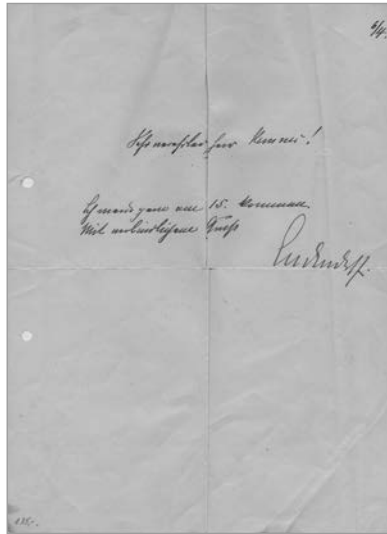 5/4.
Sehr verehrter Herr
Ich werde gern am 15. kommen.
Mit verbindlichem Gruß
Ludendorff.